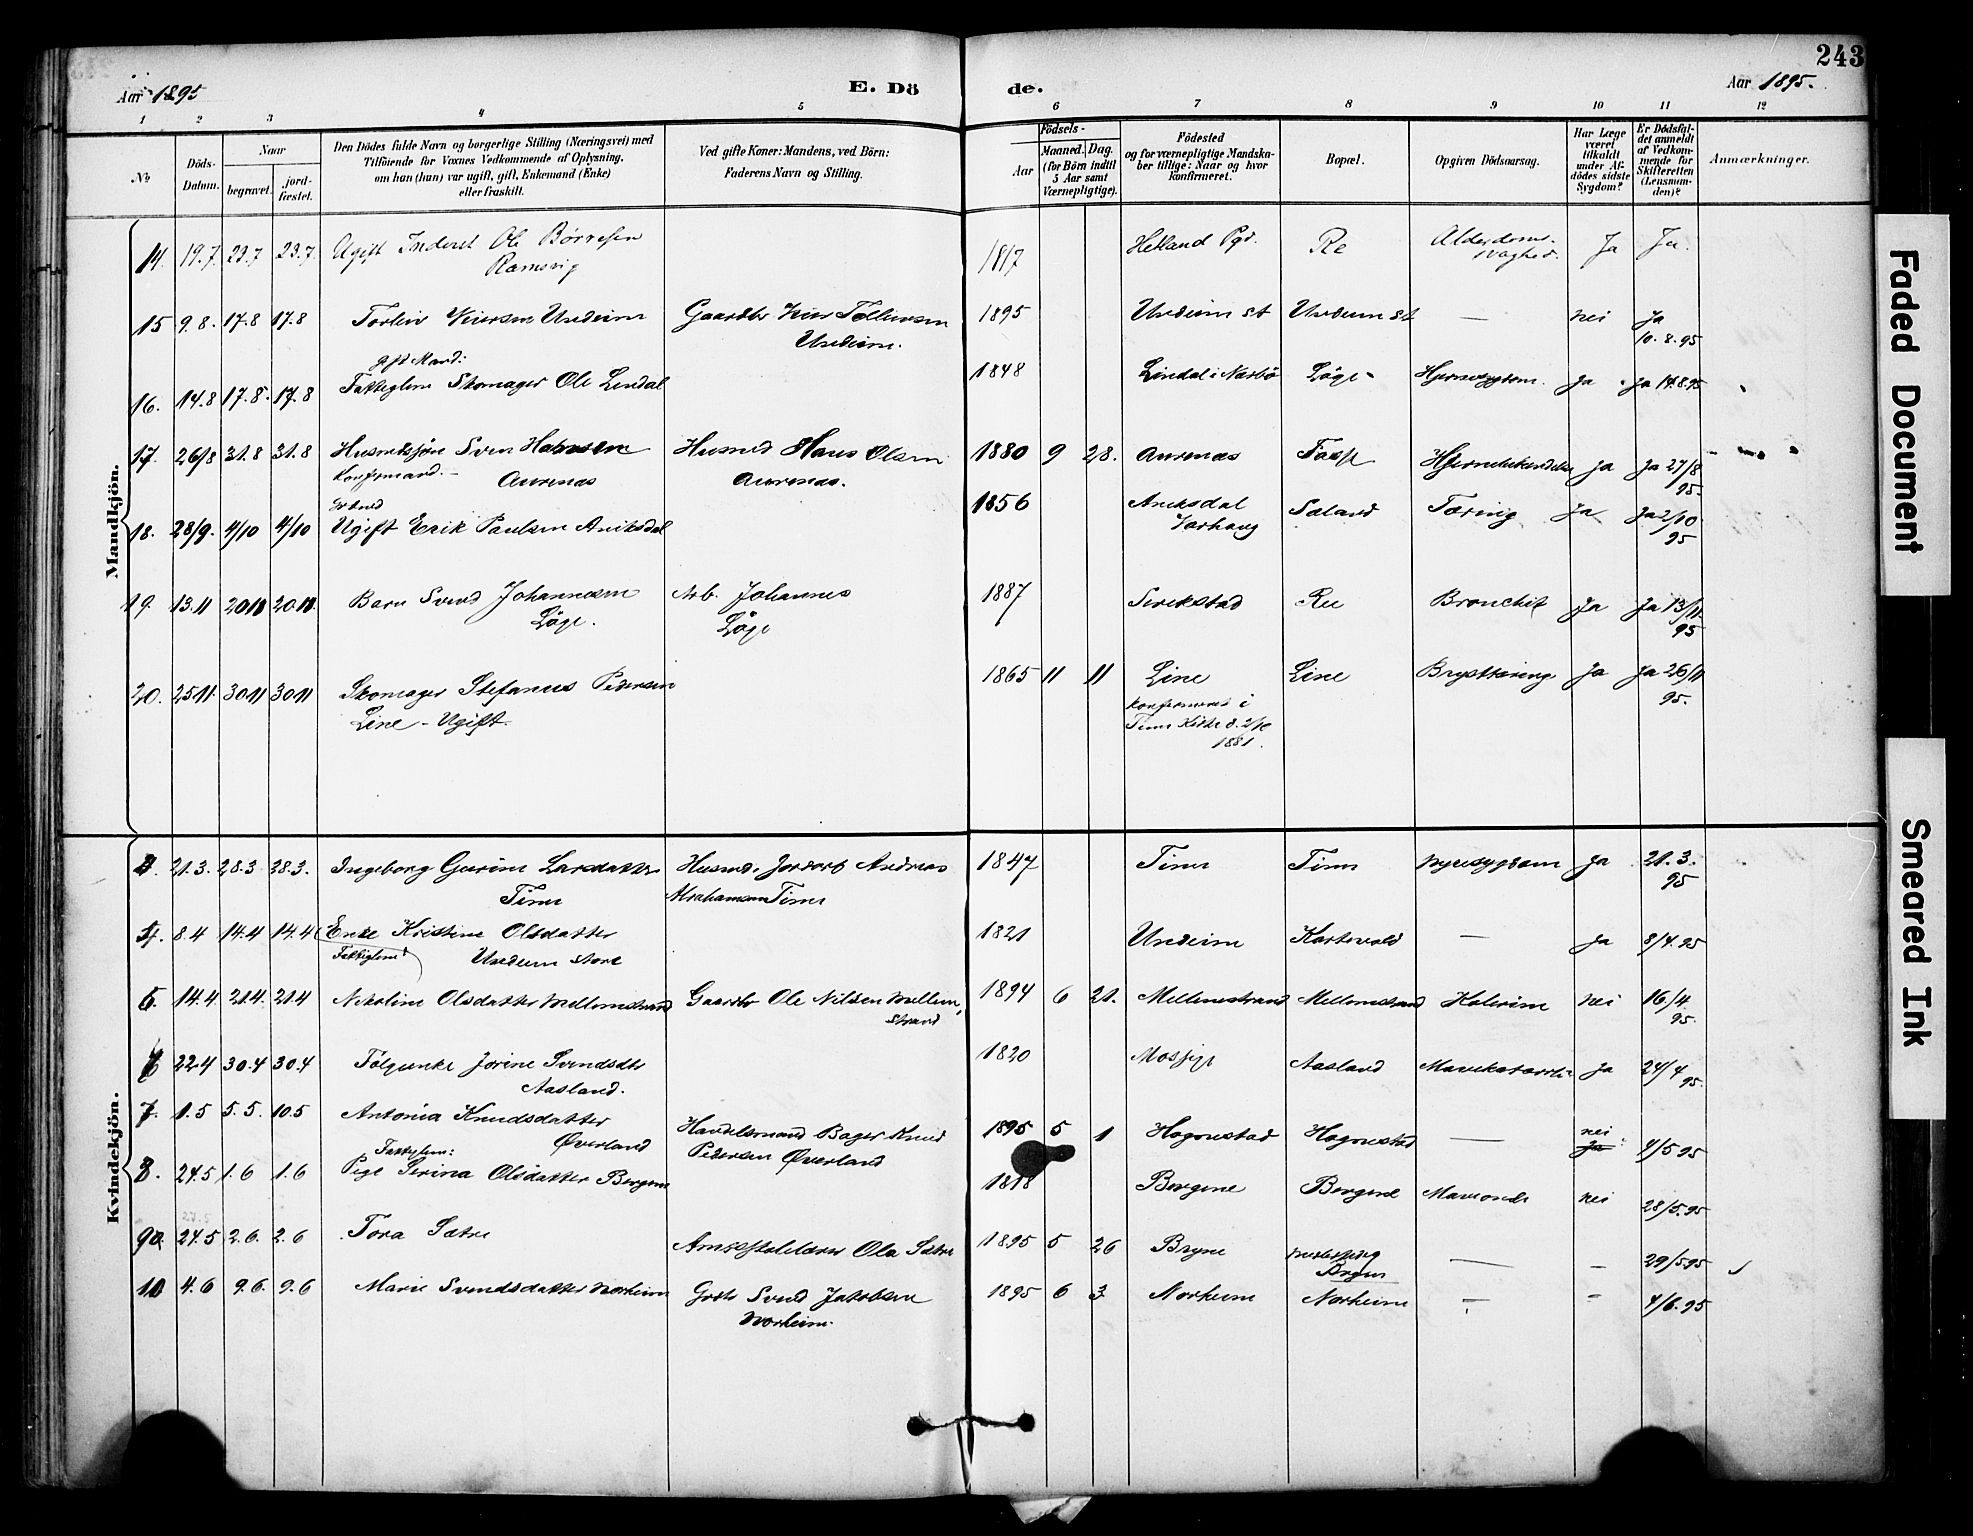 243
Aar 1895
E. Dö
de.
Aar 1895.
1 2 3 4 5 6 7 8 9 10 11 12
No
Döds-Datum.
Naar
begravet.
jord-fæstet.
Den Dödes fulde Navn og borgerlige Stilling (Næringsvei) med
Tilföiende for Voxnes Vedkommende af Oplysning,
om han (hun) var ugift, gift, Enkemand (Enke)
eller fraskilt.
Ved gifte Koner: Mandens, ved Börn:
Faderens Navn og Stilling.
Födsels-
Aar
Maaned. Dag.
(for Börn indtil
5 Aar samt
Værnepligtige).
Födested
og for værnepligtige Mandska-
ber tillige: Naar og hvor
konfirmeret.
Bopæl.
Opgiven Dödsaarsag.
Har Læge
været
tilkaldt
under Af-
dödes sidste
Sygdom?
Er Dödsfal-
det anmeldt
af Vedkom-
mende for
Skifteretten
(Lensman-
den)?
Anmærkninger.
Mandkjön.
14. 19.7. 23.7 23.7. Ugift Inderst Ole Börresen 1817 Hetland Pgd. Re Alderdoms- Ja Ja.
Ramsvig svaghed.
15 9.8. 17.8 17.8 Torleiv Undeim Gaardbr 1895 Undeim st Undeim st — nei Ja
Undeim. 10.8.95
gift Mand:
16. 14.8 17.8. 17.8 Fattiglem Skomager Ole Lindal 1848 Lindal i Narbö Löge Hjernesygdom. Ja Ja 14.8.95
17. 26/8 31.8 31.8 Husmdssön Sven Hansen Husmd Hans Olsen 1880 9 28. Aurenas Fosse Hjernebetændelse ja Ja 27/8
Konfirmand. – Aurenas Aurenas. 95.
18. 28/9. 4/10 4/10 Ugift Erik Paulsen Aniksdal 1856 Aniksdal Sæland Tæring Ja Ja 2/10
Varhaug 95
19. 13.11 20.11 20.11. Barn Svend Johannesen Arb. Johannes 1887 Serikstad Ree Bronchit Ja Ja 13/11.
Löge. Löge 95
20. 25.11. 30.11 30.11 Skomager Stefanus Pedersen 1865 11 11 Line Line Brysttæring Ja Ja 26/11
Line – Ugift. 95.
konfirmeret i
Time Kirke d. 2/10
1881.
Kvindekjön.
3. 21.3. 28.3 28.3. Ingeborg Gurine Larsdatter Husmd. Jordarb Andreas 1847 Time Time Nyresygdom Ja 21.3.
Time Abrahamsen Time 95
4. 8.4 14.4 14.4 Enke Kristine Olsdatter 1821 Undeim Kartevold — Ja 8/4.95
Fattiglem Undeim store
5. 14.4. 21.4. 21.4 Nikoline Olsdatter Mellemstrand Gaardbr Ole Nilsen Mellem- 1894 6 21. Mellemstrand Mellemstrand Kolerine nei 16/4.
strand 95.
6 22.4 30.4 30.4 Folgeenke Jorine Svendsdtr 1820 Mossige Aasland Mavekatarrh Ja 24/4
Aasland. 95.
7. 1.5 5.5. 10.5 Antonia Knudsdatter Handelsmand Bager Knud 1895 5 1 Hognestad Hognestad — nei 4/5 95
Øverland Pedersen Øverland Ja
Fattiglem:
8. 24.5 1.6 1.6 Pige Serina Olsdatter Bergene 1818 Bergene Bergene Maveonde nei 28/5.95
27.5
9a. 24.5 2.6. 2.6 Tora Sætre Ola Sætre 1895 5 26 Bryne — – 29/5 95
Bryne
10 4.6 9.6. 9.6 Marie Svendsdatter Norheim Grdbr Svend Jakobsen 1895 6 3 Norheim Norheim — – 4/6.95
Norheim.
Faded Document
Smeared Ink